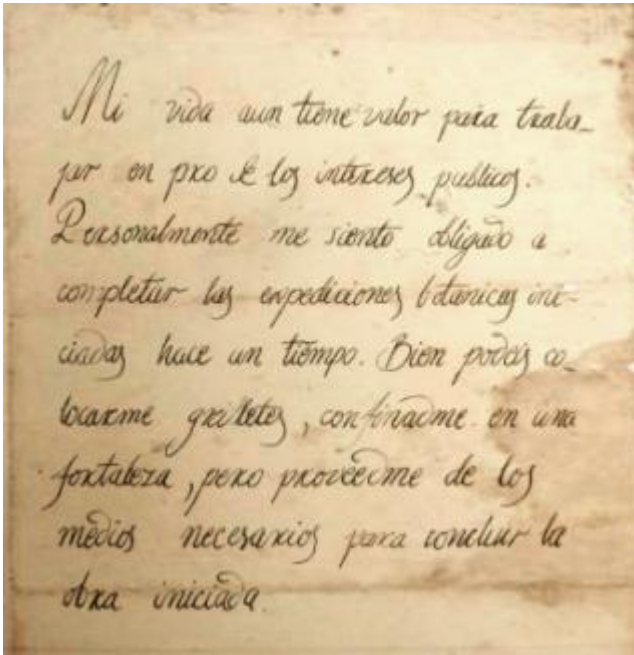 Mi vida aun tiene valor para traba-
jar en pro de los intereses publicos.
Personalmente me siento obligado a
completar las expediciones botanicas ini-
ciadas hace un tiempo. Bien podeis co-
locarme grilletes, confinadme en una
fortaleza, pero proveedme de los
medios necesarios para concluir la
obra iniciada.